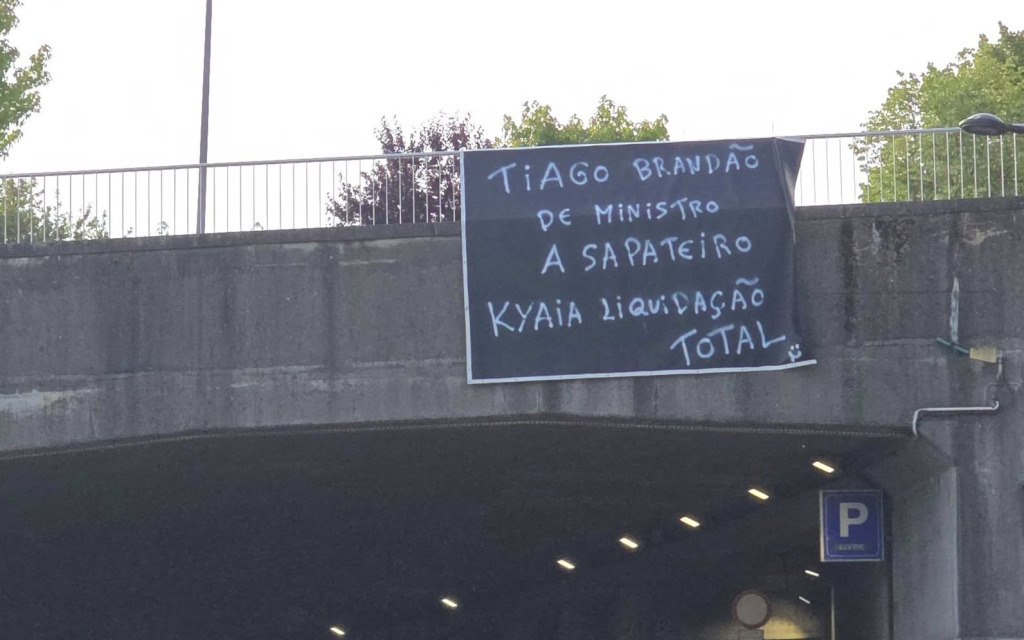 TIAGO BRANDÃO
DE MINISTRO
A SAPATEIRO
KYAIA LIQUIDAÇÃO
TOTAL
P